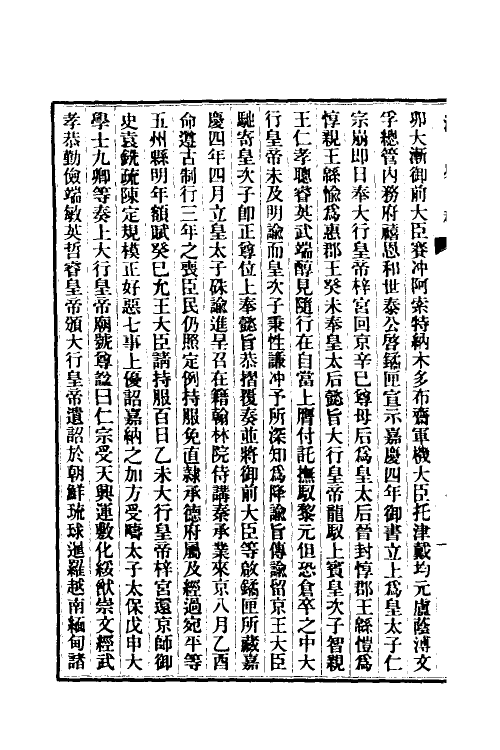 卯大漸御前大臣賽冲阿索特納木多布齋軍機大臣托津戴均元盧蔭溥文
孚總管内務府禧恩和世泰公啓鐍匣宣示嘉慶四年御書立上爲皇太子仁
宗崩即日奉大行皇帝梓宮回京辛巳尊母后爲皇太后晉封惇郡王緜愷爲
惇親王緜愉爲惠郡王癸未奉皇太后懿旨大行皇帝龍馭上賓皇次子智親
王仁孝聰睿英武端醇見隨行在自當上膺付託撫馭黎元但恐倉卒之中大
行皇帝未及明諭而皇次子秉性謙冲予所深知爲降諭旨傳諭留京王大臣
馳寄皇次子卽正尊位上奉懿旨恭摺覆奏並將御前大臣等啟鐍匣所藏嘉
慶四年四月立皇太子硃諭進呈召在籍翰林院侍講秦承業來京八月乙酉
命遵古制行三年之喪臣民仍照定例持服免直隷承德府屬及經過宛平等
五州縣明年額賦癸巳允王大臣請持服百日乙未大行皇帝梓宮還京師御
史袁銑疏陳定規模正好惡七事上優詔嘉納之加方受疇太子太保戊申大
學士九卿等奏上大行皇帝廟號尊諡曰仁宗受天興運敷化綏猷崇文經武
孝恭勤儉端敏英哲睿皇帝頒大行皇帝遺詔於朝鮮琉球暹羅越南緬甸諸